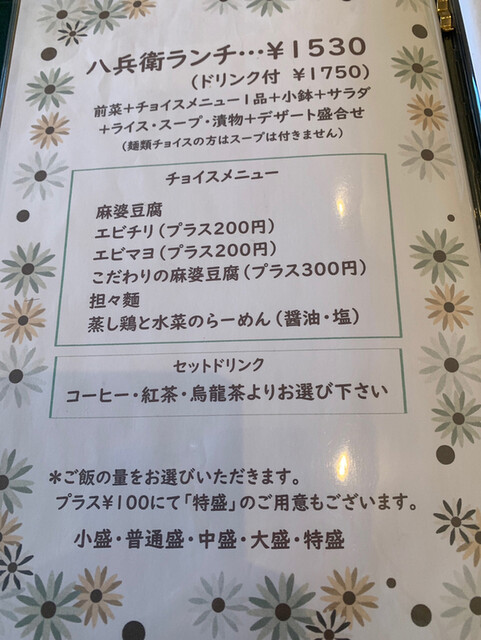 八兵衛ランチ…¥1530
(ドリンク付 ¥1750)
前菜+チョイスメニュー1品+小鉢+サラダ
+ライス・スープ・漬物+デザート盛合せ
(麺類チョイスの方はスープは付きません)
チョイスメニュー
麻婆豆腐
エビチリ(プラス200円)
エビマヨ(プラス200円)
こだわりの麻婆豆腐(プラス300円)
担々麺
蒸し鶏と水菜のらーめん(醤油・塩)
セットドリンク
コーヒー・紅茶・烏龍茶よりお選び下さい
*ご飯の量をお選びいただきます。
プラス¥100にて「特盛」のご用意もございます。
小盛・普通盛・中盛・大盛・特盛